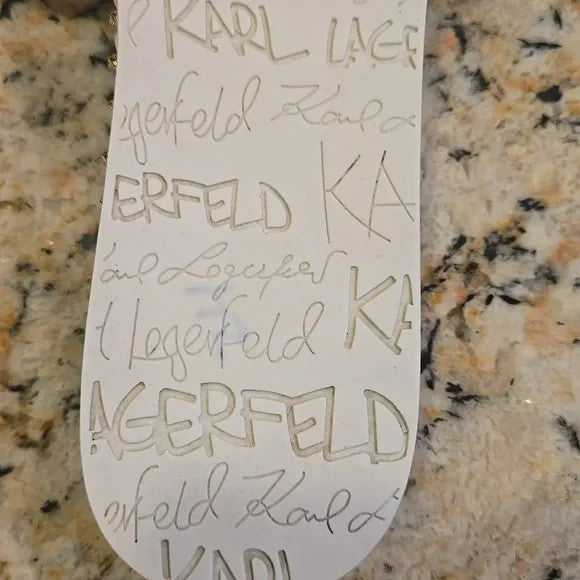 KARL LAGE
gerfeld Karl
ERFELD KA
Lagerfeld
KA
t Lagerfeld
AGERFELD
rfeld Karl L
KARL